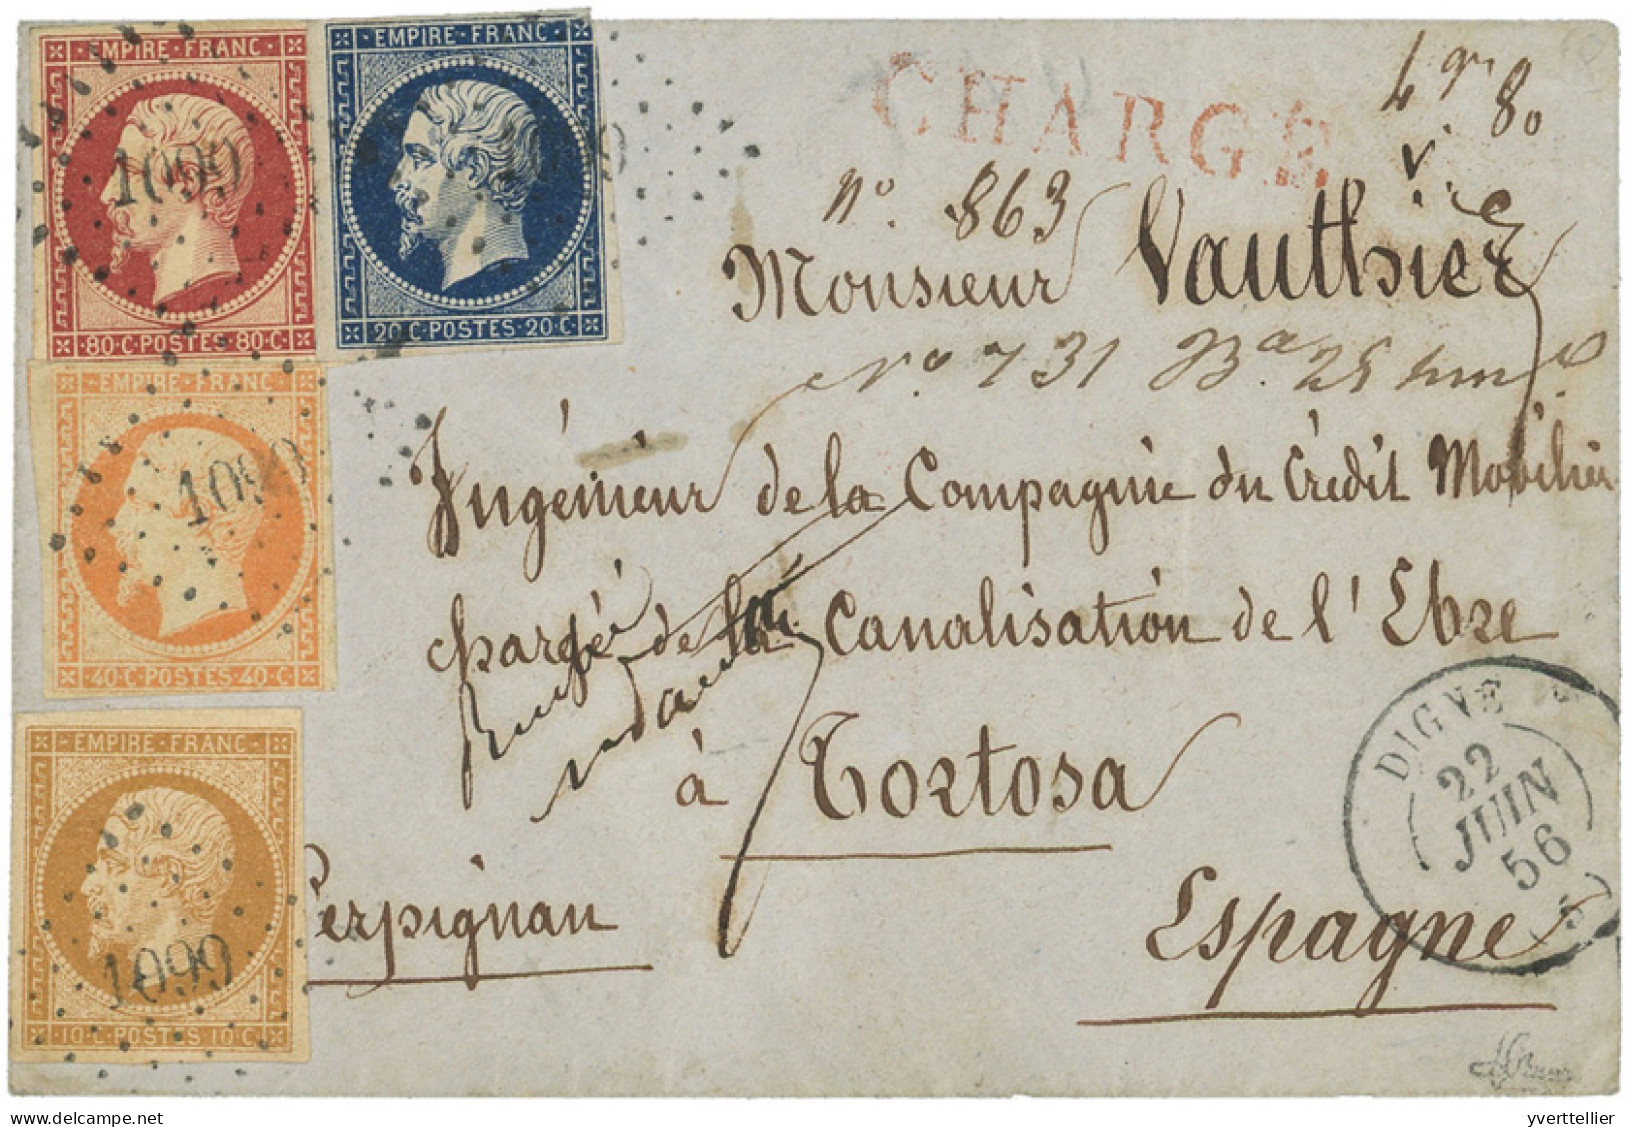 EMPIRE · FRANC
1099
80 · C · POSTES · 80 · C
EMPIRE · FRANC
20 · C · POSTES · 20 · C
EMPIRE · FRANC
1099
40 · C · POSTES · 40 · C
EMPIRE · FRANC
1099
10 · C · POSTES · 10 · C
CHARGÉ
4 gr 80
n° 863
Monsieur Vauthier
N° 731 Ba 25
Ingénieur de la Compagnie du Crédit Mobilier
chargé de la Canalisation de l'Ebre
à Tortosa
Perpignan
Espagne
DIGNE
22
JUIN
56
yverttellier